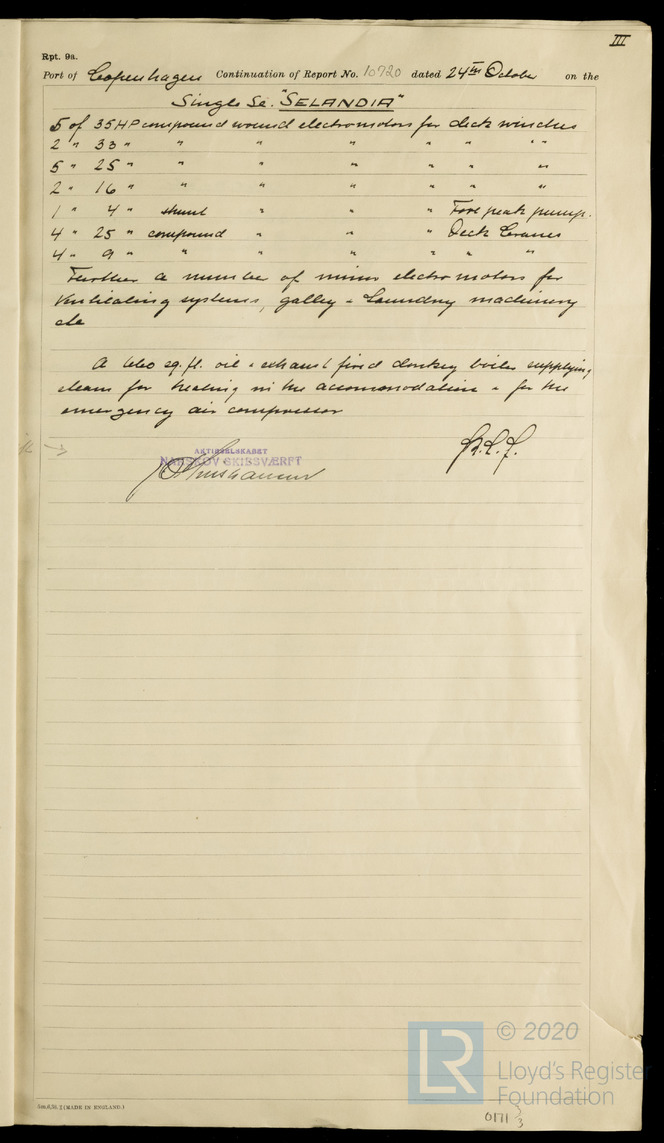 III
Rpt. 9a.
Port of Copenhagen Continuation of Report No. 10720 dated 24th October on the
Single Sc. "SELANDIA"
5 of 35 HP compound wound electromotors for deck winches
2 " 33 " " " " " " "
5 " 25 " " " " " " "
2 " 16 " " " " " " "
1 " 4 " shunt " " " Fore peak pump.
4 " 25 " compound " " " Deck Cranes
4 " 9 " " " " " " "
Further a number of minor electromotors for
ventilating systems, galley & laundry machinery
etc
A sq. ft. oil & exhaust fired donkey boiler supplying
steam for heating in the accommodation & for the
emergency air compressor
AKTIESELSKABET
NAKSKOV SKIBSVÆRFT
© 2020
LR
Lloyd's Register
Foundation
(MADE IN ENGLAND.)
0171 3/3